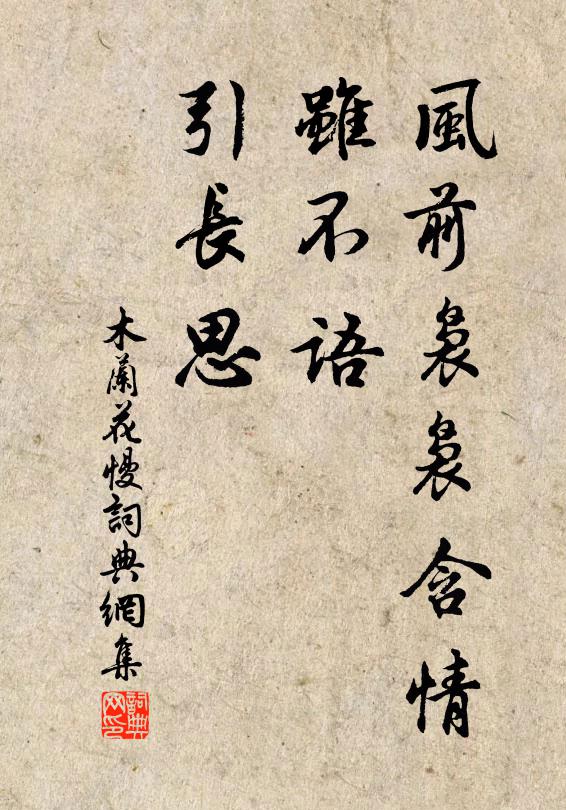 風前裊裊含情
雖不語
引長思
木蘭花慢詞典網集
詞典
网印